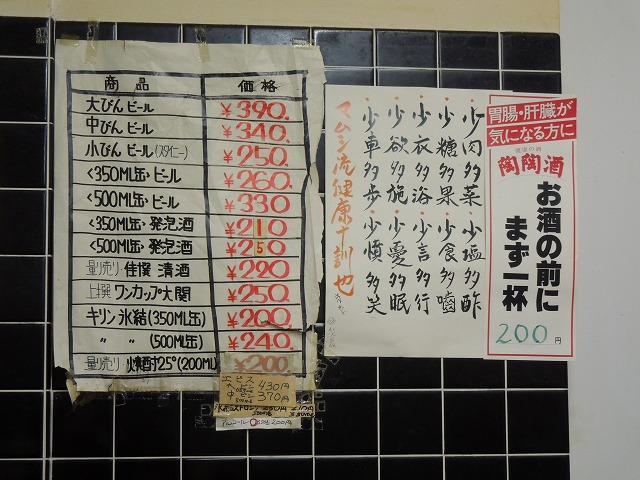 商品 価格
大びん ビール ¥390.
中びん ビール ¥340.
小びん ビール(スタイニー) ¥250.
<350ML缶・ビール ¥260.
<500ML缶・ビール ¥330
<350ML缶・発泡酒 ¥210
<500ML缶・発泡酒 ¥250
量り売り・佳撰 清酒 ¥220
上撰 ワンカップ大関 ¥250.
キリン 氷結(350ML缶) ¥200.
〃 〃 (500ML缶) ¥240.
量り売り・焼酎25°(200ML) ¥200
エビス
大 430円
中 370円
500ml
200円
・少肉多菜・少塩多酢
・少糖多果・少食多噛
・少衣多浴・少言多行
・少欲多施・少憂多眠
・少車多歩・少憤多笑
マムシ流健康十訓也
胃腸・肝臓が
気になる方に
健康の酒
陶陶酒
お酒の前に
まず一杯
200円